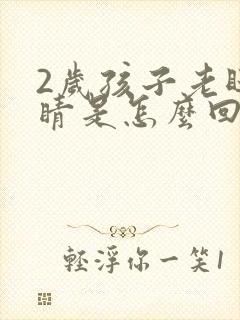 2歲孩子老眨
睛是怎麼回
輕浮你一笑1